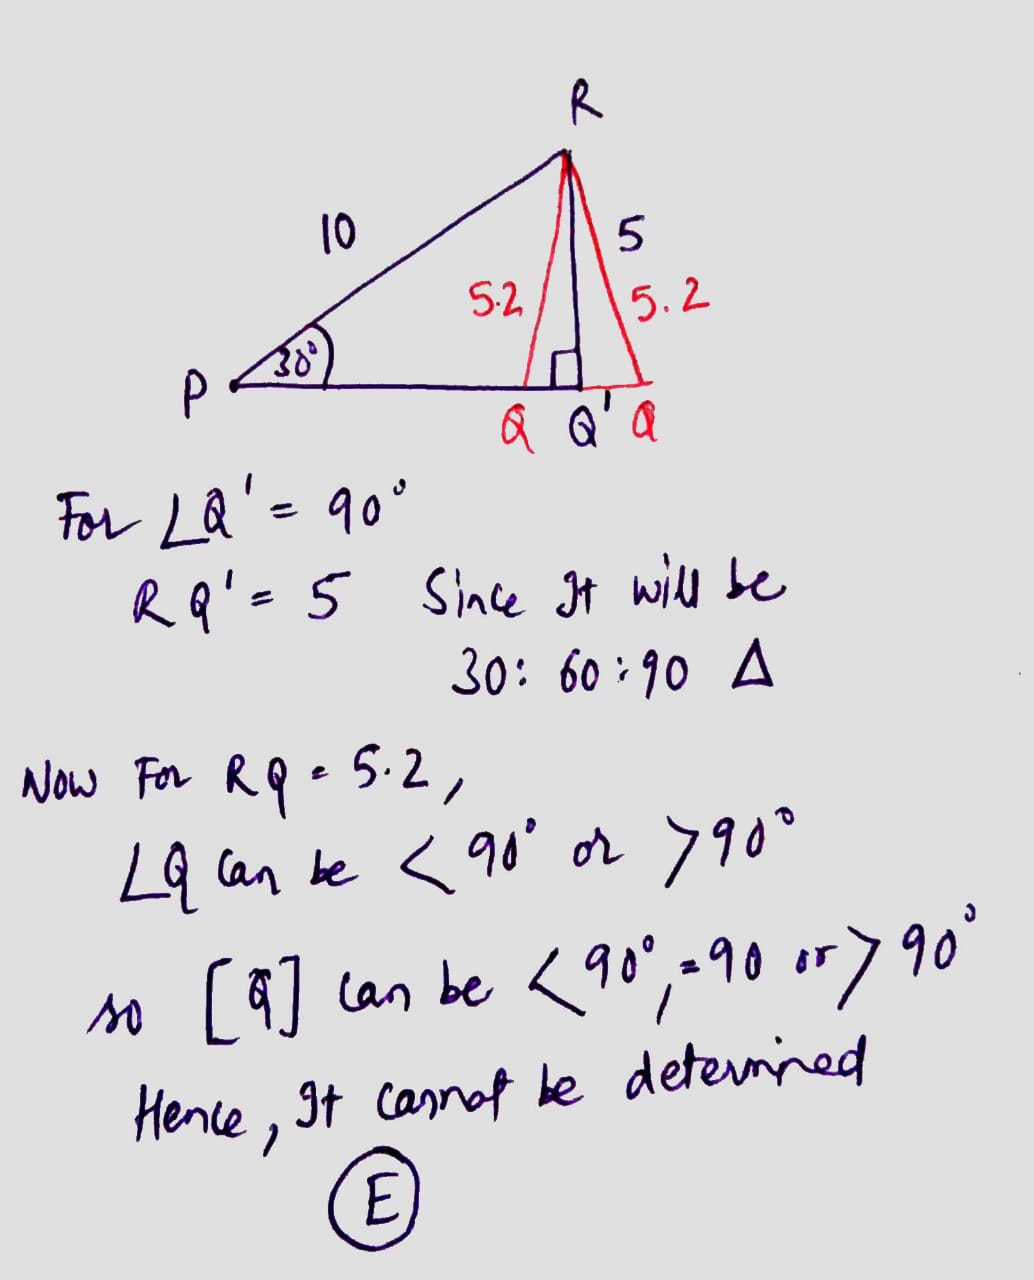 R
10
5
5.2
5.2
30°
P
Q Q' Q
For ∠Q' = 90°
RQ' = 5 Since It will be
30: 60 : 90 Δ
Now For RQ = 5.2,
∠Q Can be < 90° or > 90°
so [Q] can be < 90°, = 90 or > 90°
Hence, It cannot be determined
E